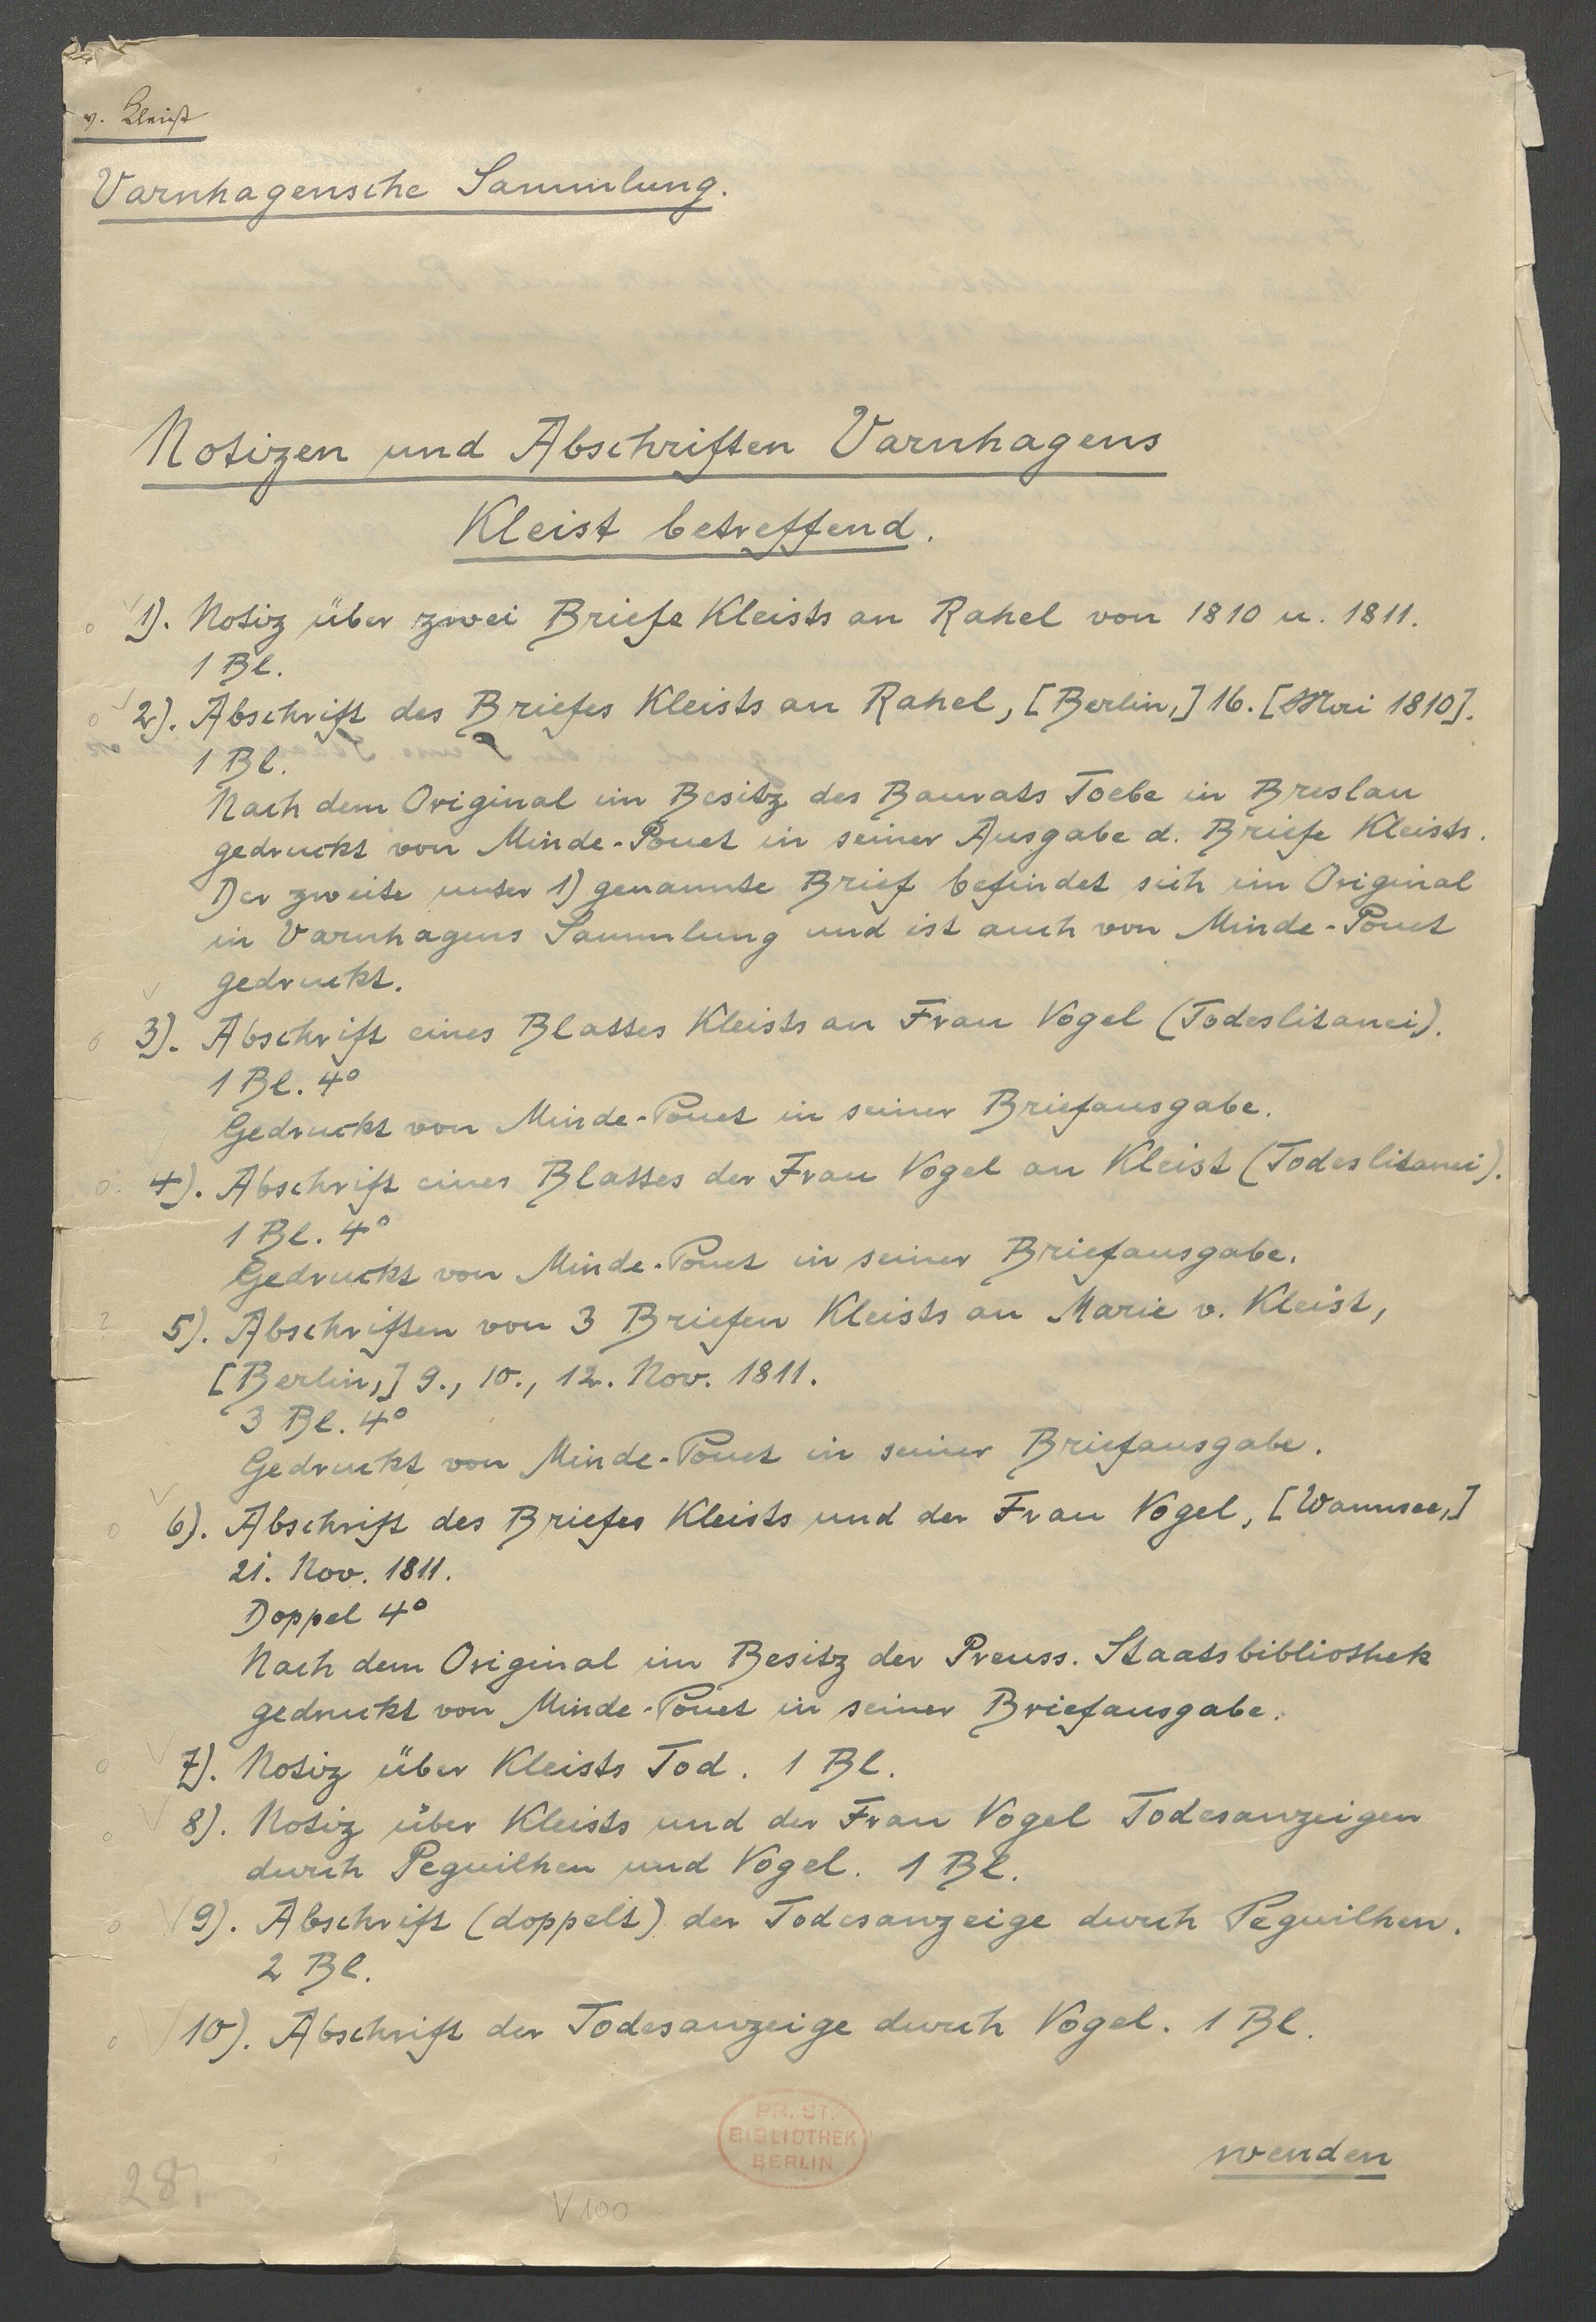 v. Kleist
Varnhagensche Sammlung.
Notizen und Abschriften Varnhagens
Kleist betreffend.
1). Notiz über zwei Briefe Kleists an Rahel von 1810 u. 1811.
1 Bl.
2). Abschrift des Briefes Kleists an Rahel, [Berlin,] 16. [Mai 1810].
1 Bl.
Nach dem Original im Besitz des Baurats Toebe in Breslau
gedruckt von Minde-Pouet in seiner Ausgabe d. Briefe Kleists.
Der zweite unter 1) genannte Brief befindet sich im Original
in Varnhagens Sammlung und ist auch von Minde-Pouet
gedruckt.
3). Abschrift eines Blattes Kleists an Frau Vogel (Todeslitanei).
1 Bl. 4°
Gedruckt von Minde-Pouet in seiner Briefausgabe.
4). Abschrift eines Blattes der Frau Vogel an Kleist (Todeslitanei).
1 Bl. 4°
Gedruckt von Minde-Pouet in seiner Briefausgabe.
? 5). Abschriften von 3 Briefen Kleists an Marie v. Kleist,
[Berlin,] 9., 10., 12. Nov. 1811.
3 Bl. 4°
Gedruckt von Minde-Pouet in seiner Briefausgabe.
6). Abschrift des Briefes Kleists und der Frau Vogel, [Wannsee,]
21. Nov. 1811.
Doppel 4°
Nach dem Original im Besitz der Preuss. Staatsbibliothek
gedruckt von Minde-Pouet in seiner Briefausgabe.
7). Notiz über Kleists Tod. 1 Bl.
8). Notiz über Kleists und der Frau Vogel Todesanzeigen
durch Peguilhen und Vogel. 1 Bl.
9). Abschrift (doppelt) der Todesanzeige durch Peguilhen.
2 Bl.
10). Abschrift der Todesanzeige durch Vogel. 1 Bl.
PR. ST.
BIBLIOTHEK
BERLIN
wenden
28.
V 100